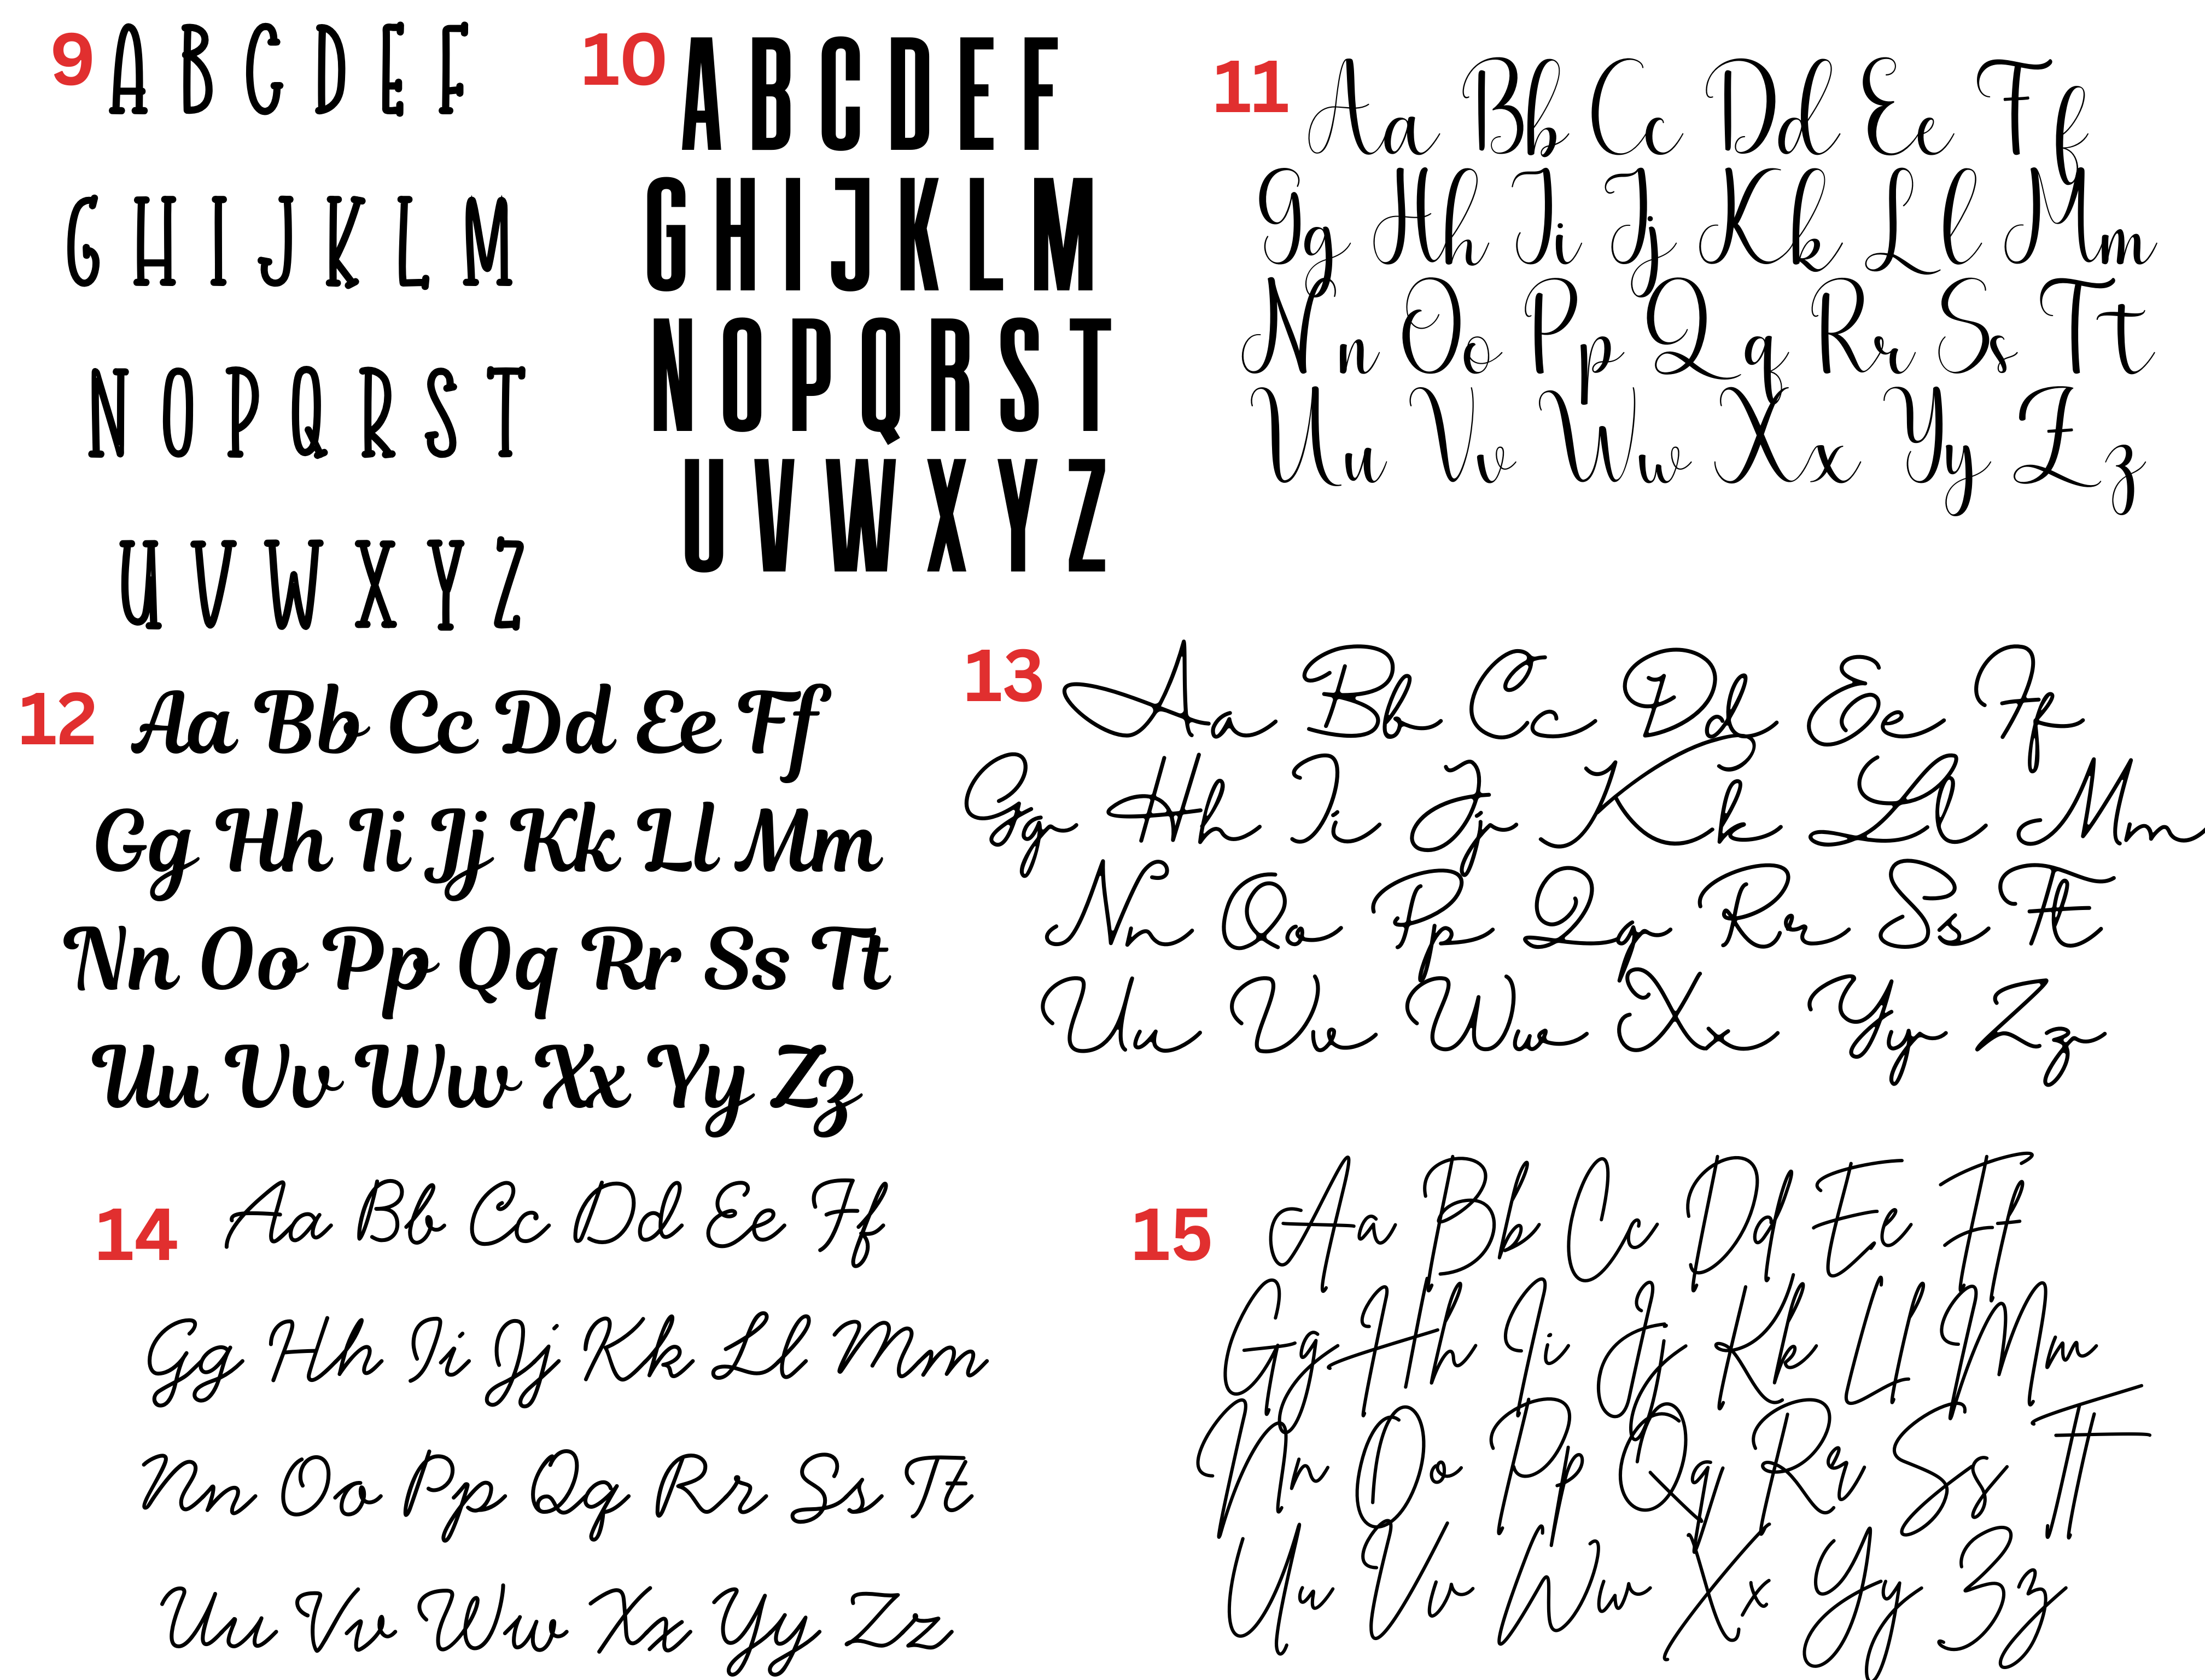 9 A B C D E F
G H I J K L M
N O P Q R S T
U V W X Y Z
10 A B C D E F
G H I J K L M
N O P Q R S T
U V W X Y Z
11 Aa Bb Cc Dd Ee Ff
Gg Hh Ii Jj Kk Ll Mm
Nn Oo Pp Qq Rr Ss Tt
Uu Vv Ww Xx Yy Zz
12 Aa Bb Cc Dd Ee Ff
Gg Hh Ii Jj Kk Ll Mm
Nn Oo Pp Qq Rr Ss Tt
Uu Vv Ww Xx Yy Zz
13 Aa Bb Cc Dd Ee Ff
Gg Hh Ii Jj Kk Ll Mm
Nn Oo Pp Qq Rr Ss Tt
Uu Vv Ww Xx Yy Zz
14 Aa Bb Cc Dd Ee Ff
Gg Hh Ii Jj Kk Ll Mm
Nn Oo Pp Qq Rr Ss Tt
Uu Vv Ww Xx Yy Zz
15 Aa Bb Cc Dd Ee Ff
Gg Hh Ii Jj Kk Ll Mm
Nn Oo Pp Qq Rr Ss Tt
Uu Vv Ww Xx Yy Zz